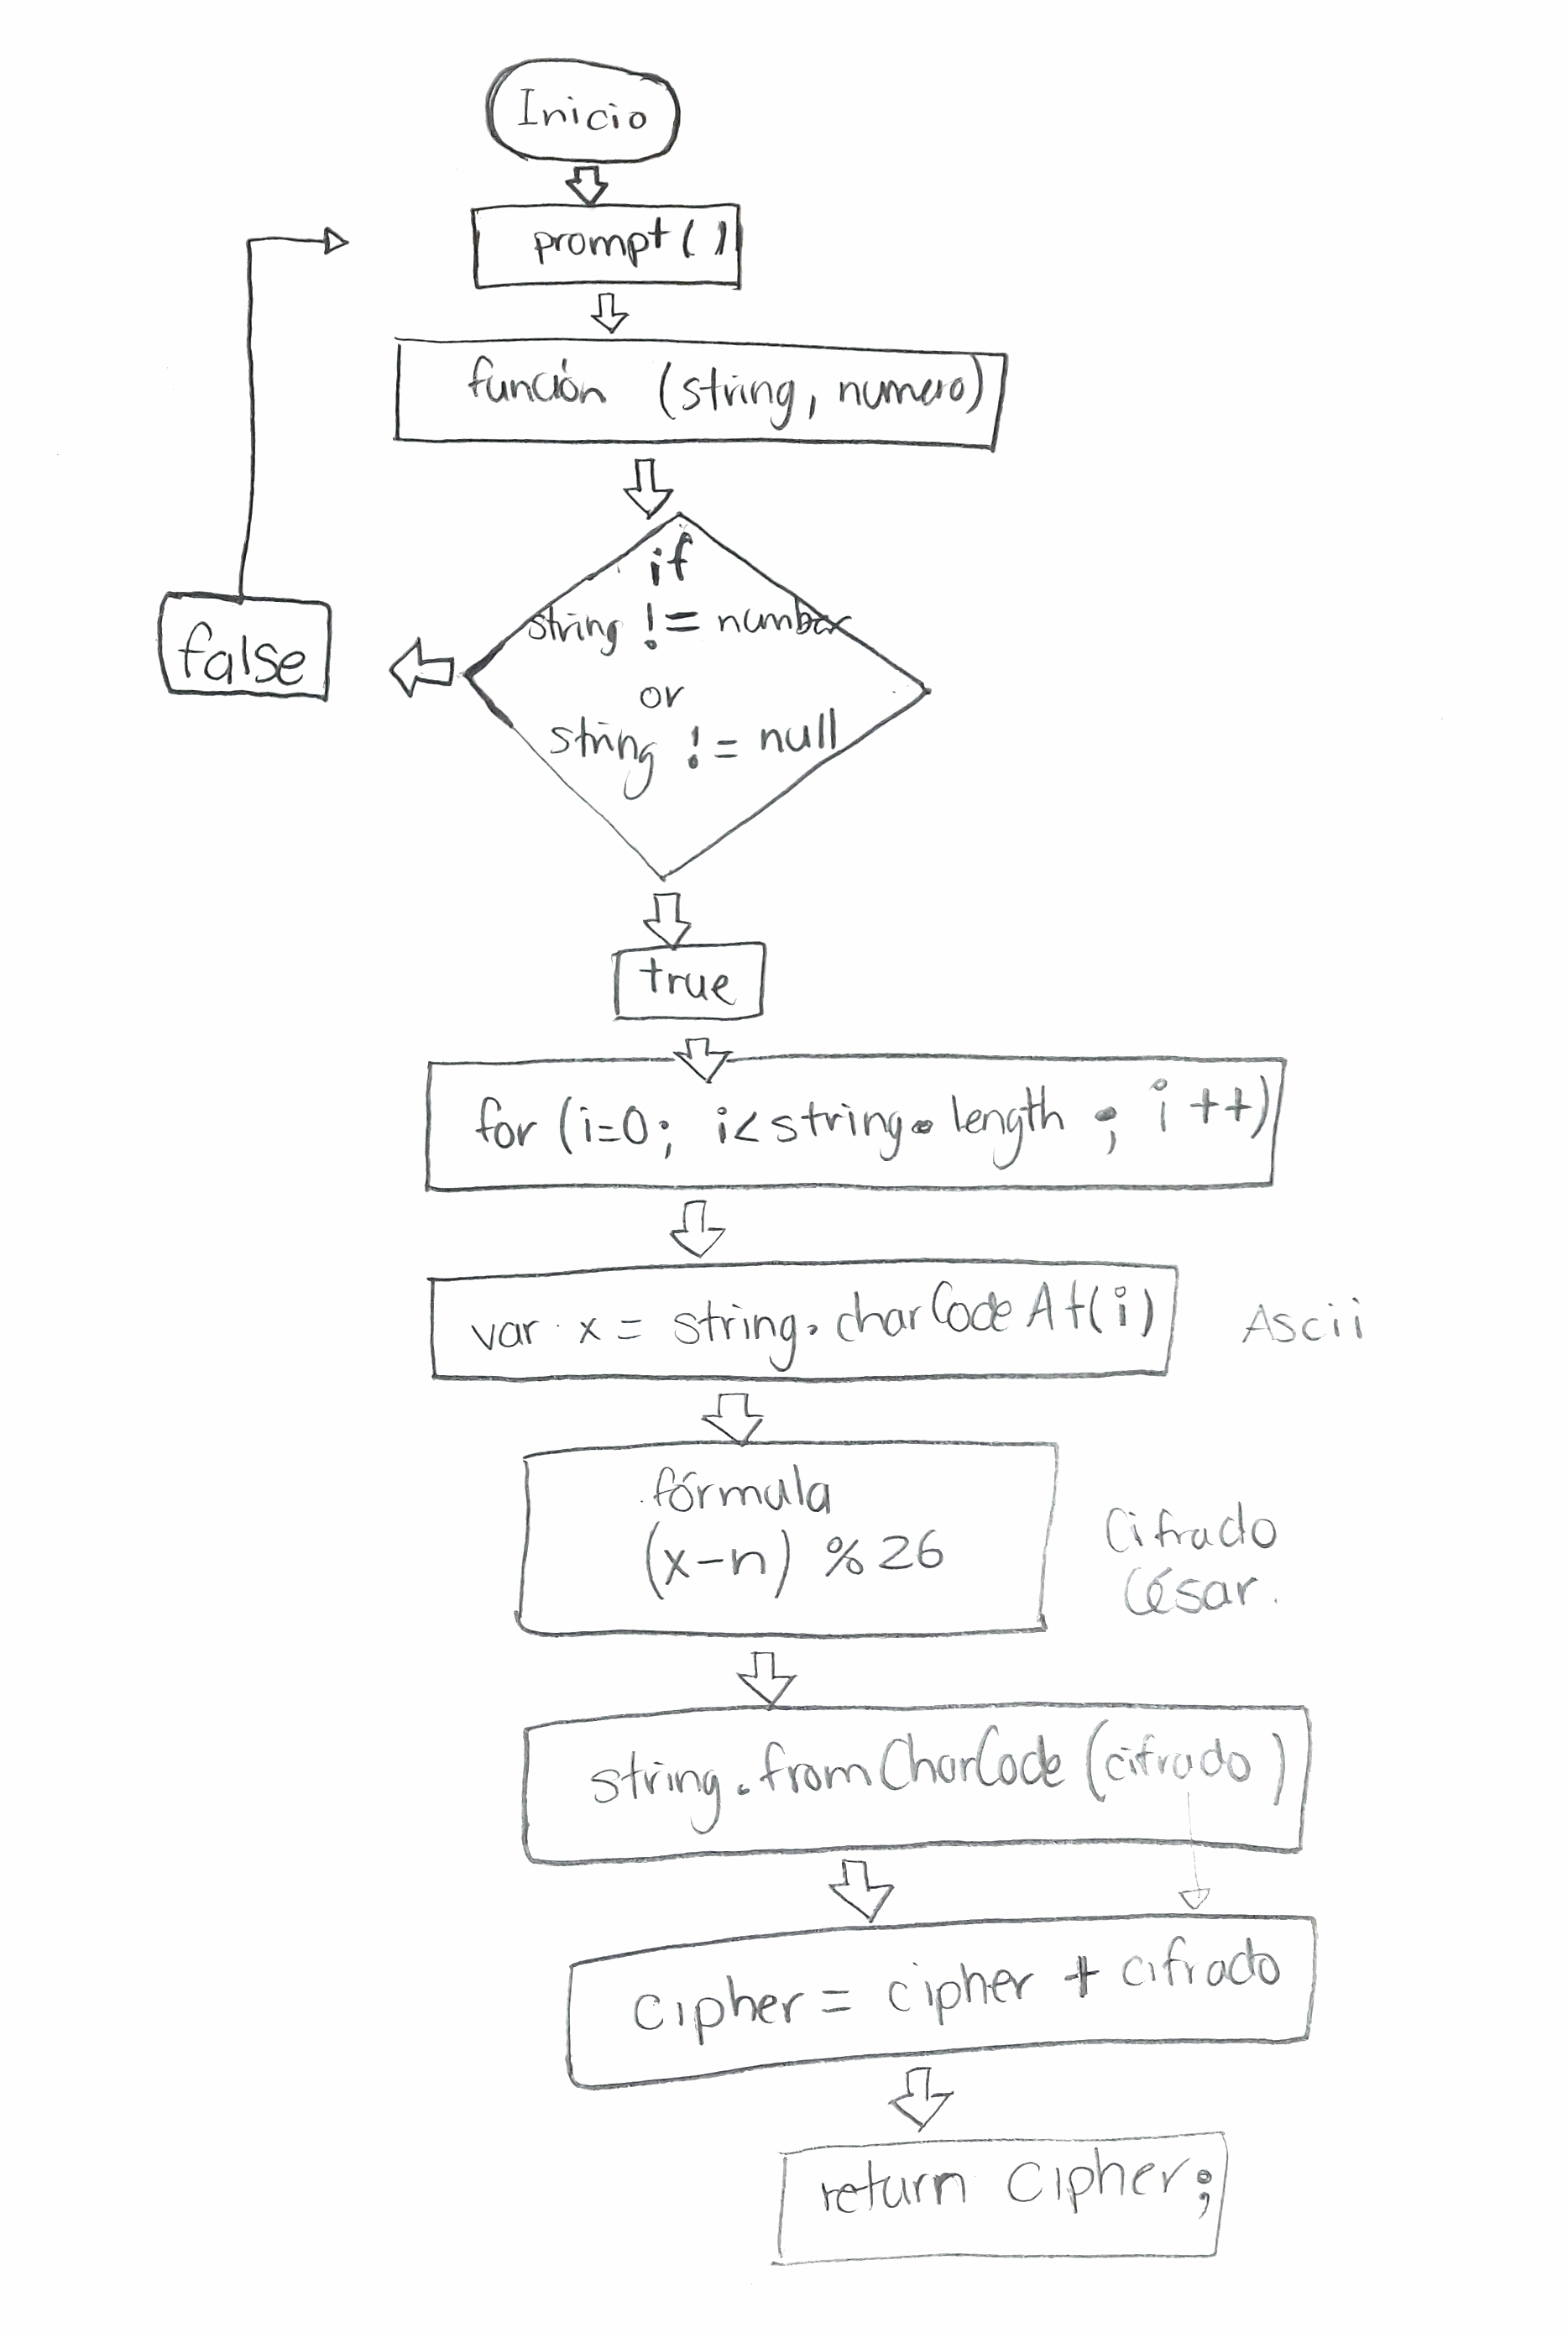 Inicio
prompt ( )
función (string, numero)
if
string != number
or
string != null
false
true
for (i=0; i<string.length ; i ++)
var x = string.charCodeAt(i)
Ascii
fórmula
(x-n) %26
Cifrado
César.
string.fromCharCode (cifrado)
cipher = cipher + cifrado
return cipher;